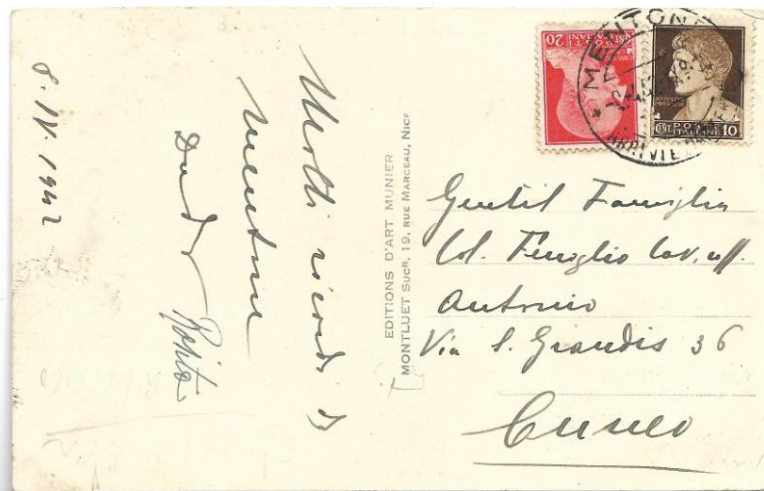 8. IV. 1942
Molti ricordi di
mentone
Rosita
EDITIONS D'ART MUNIER
MONTLUET SUCR, 19, RUE MARCEAU, NICE
20
POSTE
ITALIANE
MENTON
POSTE
ITALIANE 10
Gentil Famiglia
Col. Feruglio Cav. uff.
Antonio
Via S. Grandis 36
Cuneo